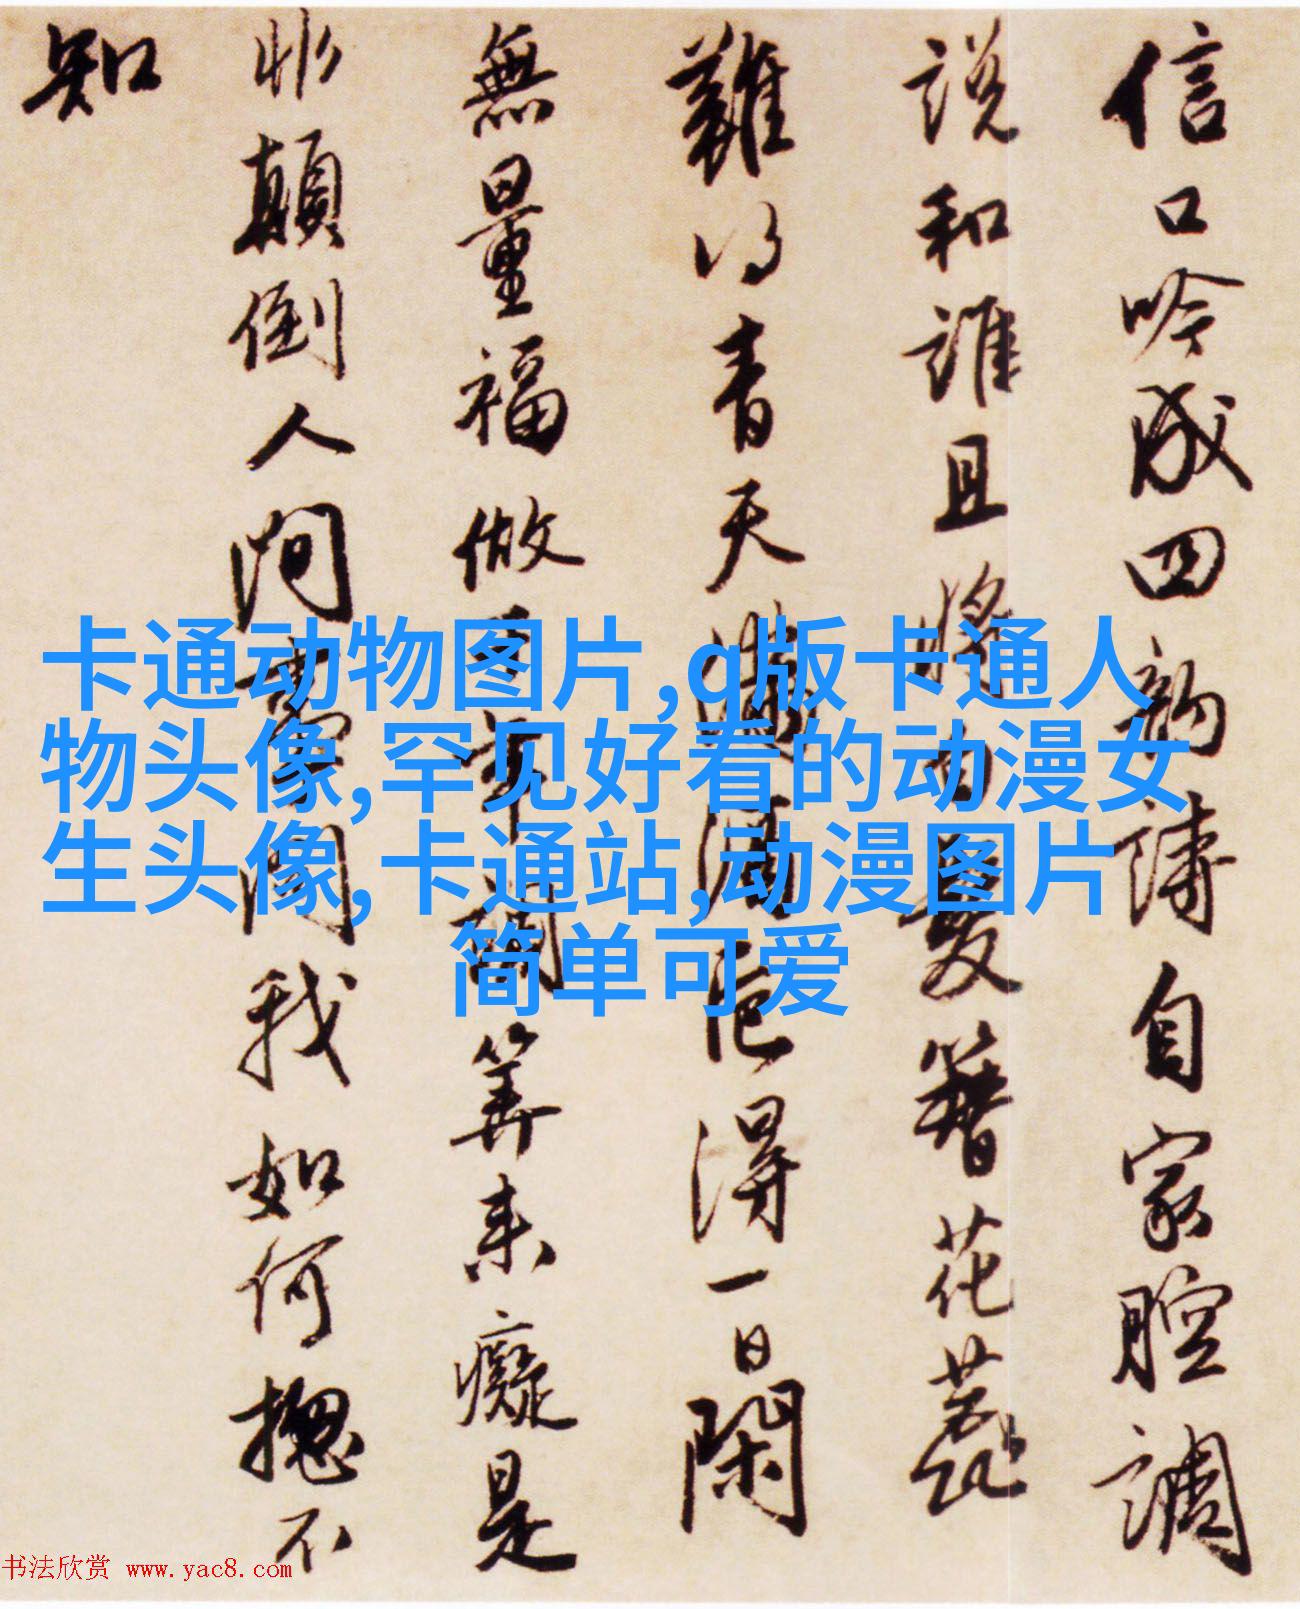 信口吟成四韵詩自家腔調
說和誰且將白髮簪花蕊
難得青天滿酒卮得一日閑
無量福做千年調算来癡是
非顛倒人間問我如何揔不
知
卡通动物图片,q版卡通人
物头像,罕见好看的动漫女
生头像,卡通站,动漫图片
简单可爱
书法欣赏 www.yac8.com